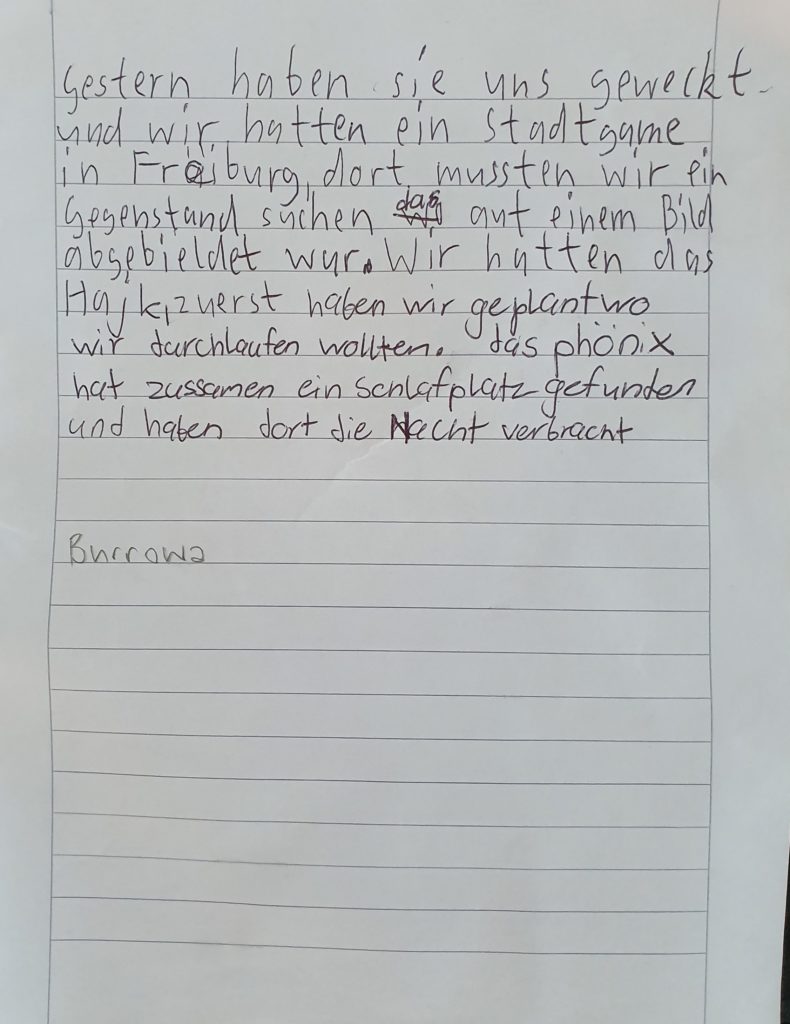 Gestern haben sie uns geweckt.
und wir hatten ein Stadtgame
in Freiburg, dort mussten wir ein
Gegenstand suchen das auf einem Bild
abgebieldet war. Wir hatten das
Hajk, zuerst haben wir geplant wo
wir durchlaufen wollten. das phönix
hat zussamen ein Schlafplatz gefunden
und haben dort die Nacht verbracht
Burrowa